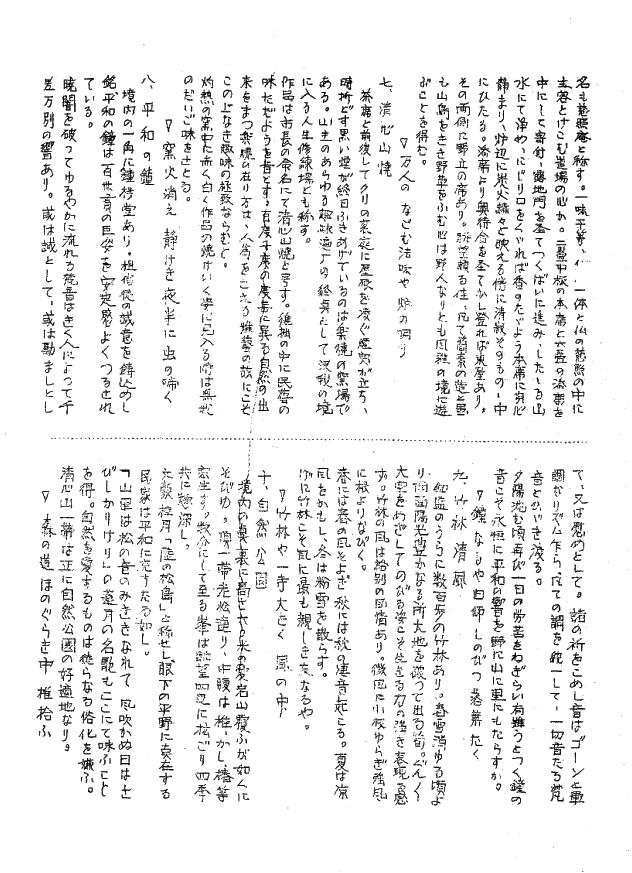 名も慈照庵と称す。一味平等、仏一体と仏の慈照の中に
主客とけこむ道場の心か。二畳中板の本席と六畳の添席を
中にして寄付、露地門を圣てつくばいに進み、したいる山
水にて浄め、にじり口をくぐれば香のただよう本席に宛心
静まり、炉辺に炭火續々と映える傍に清寂そのもの一中
にひたる。添席より奥待合を圣てかし登れば東屋あり。
その両側に野立の席あり。
も山菊をさき野草をふむ心は野人なりとも風雅の境に遊
ぶことを得む。
▽万人の なごむ法味や 炉の囲り
七、清心山焼
茶席と前後してクリの茶花に屋根を凌ぐ煙突が立ち、
時折どす黒い煙が終日ふきあげているのは楽焼の窯場で
ある。山主のあらゆる趣味道戸の終点として没我の境
に入る人生修練場とも称す。
作品は市長の命名にて清心山焼と号す。雅趣の中に民芸の
味ただようを旨とす。百度千度の度毎に異る自然の出
来をまつ楽焼の在り方は、人為をこえる雅拳の故にこそ
この上なき趣味の極致ならむと。
灼熱の窯中に赤く白く作品の焼けいく学に見入る時は無我
のだいご味をさとる。
▽窯火消え 静けき夜半に 虫の啼く
八、平和の鐘
境内の一角に鐘楼堂あり。檀信徒の誠意を鋳込めし
銘、平和の鐘は百世貫の巨姿を安定感よくつるされ
ている。
暁闇を破ってゆるやかに流れる梵音はきく人によって千
差万別の響あり。或は誡として、或は励ましとし
て、又は慰めとして。諸の祈をこめし音はゴーンと重
調なリズム乍ら、凡ての調を統一して、一切音たる梵
音とひびき渡る。
夕陽沈む頃再び一日の労苦をねぎらい有難うとつく鐘の
音こそ永恒に平和の響を野に山に里にもたらすか。
▽鐘なるや 白師しのびつ 落葉たく
九、竹林清風
経蔵のうらに数百歩の竹林あり。春雪消ゆる頃よ
り南面陽光豊かなる所大地を破って出る筍。ぐんぐん
大空をめざしてのびる姿こそ生きる力の強き表現を感
ず。竹林の風は格別の風情あり。微風に小枝ゆらぎ強風
に根よりなびく。
春には春の風そよぎ、秋には秋の恵音起こる。夏は凉
風をかもし、冬は粉雪を散らす。
げに竹林こそ風に最も親しき友なるや。
▽竹林や 一寺大きく 風の中
十、自然公園
境内の真裏に高さ六十米の愛名山覆ふが如くに
そびゆ。頂一帯老松連り、中腹は椎、かし、椿等
密生す。数分にして至る峯は眺望四辺に拡ごり四季
共に趣深し。
大徹桂月「陸の松島」と称せし眼下の平野に奠在する
民家は平和に充ちたる如し。
「山里は松の音のみききなれて 風吹かぬ日は士
びしかりけり」の蓮月の名歌もここにて味ふこと
を得。自然を愛するものは徒らなる俗化を嫌ふ。
清心山一帯は正に自然公園の好適地なり。
▽森の道 ほのぐらき中 椎拾ふ